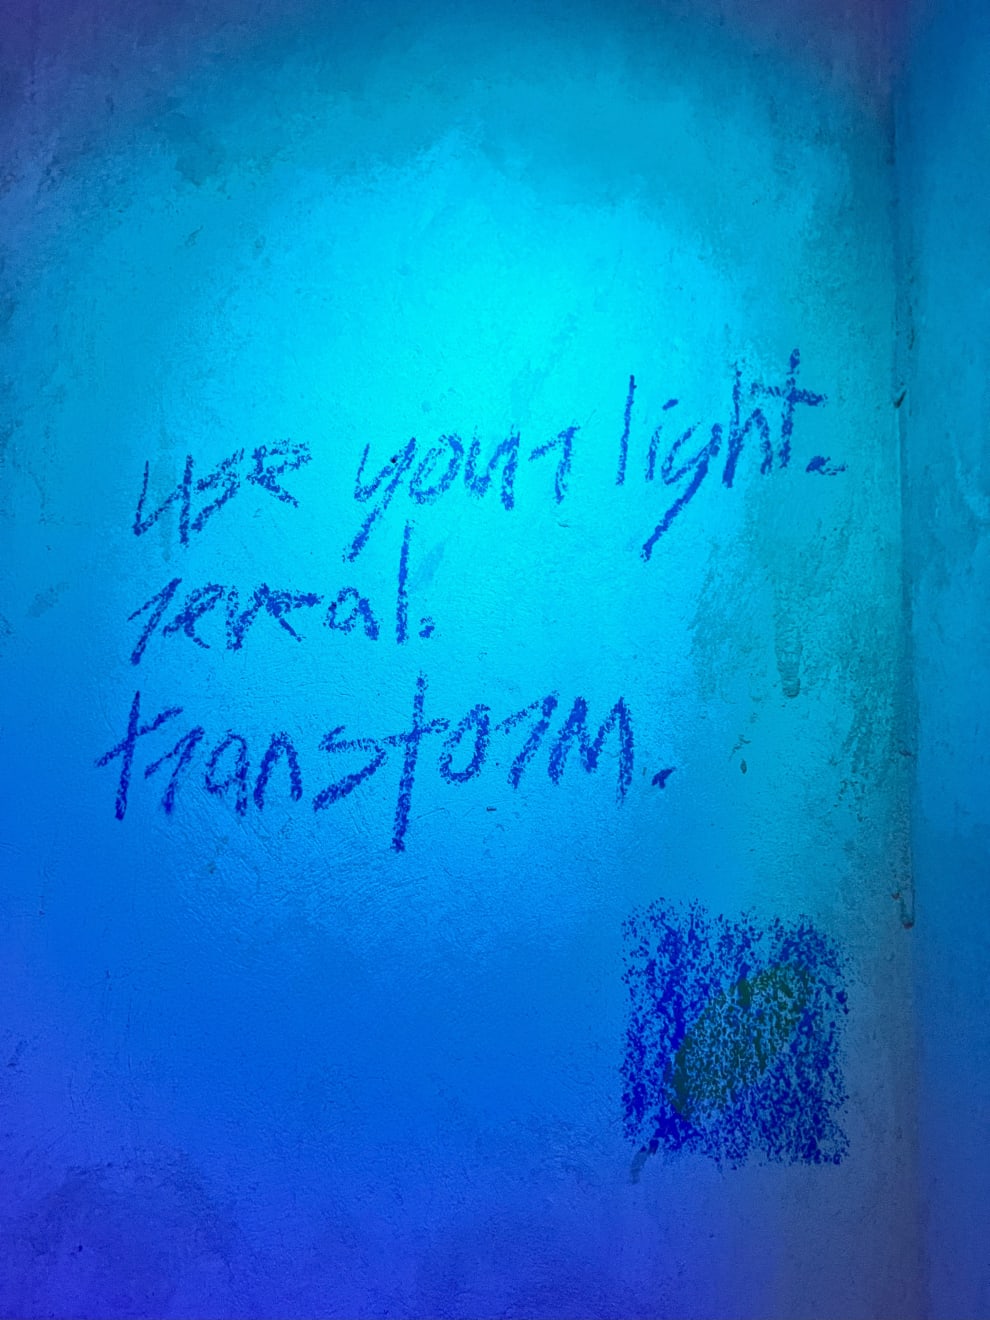 use your light.
reveal.
transform.